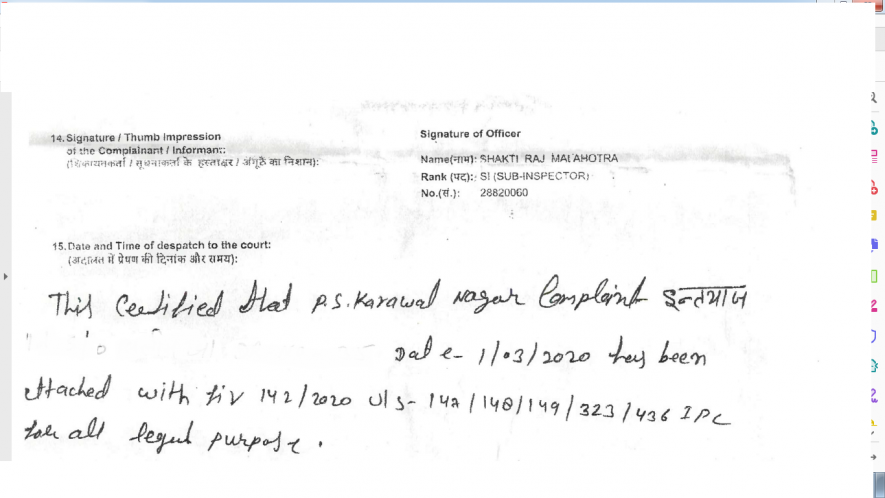 14. Signature / Thumb Impression
of the Complainant / Informant:
(शिकायतकर्ता / सूचनाकर्ता के हस्ताक्षर / अंगूठे का निशान):
Signature of Officer
Name(नाम): SHAKTI RAJ MALAHOTRA
Rank (पद):: SI (SUB-INSPECTOR)
No.(सं.): 28820060
15. Date and Time of despatch to the court:
(अदालत में प्रेषण की दिनांक और समय):
This Certified that P.S. Karawal Nagar Complaint इन्तयाज
Date- 1/03/2020 has been
attached with fir 142/2020 U/S- 147/148/149/323/436 IPC
for all legal purpose.